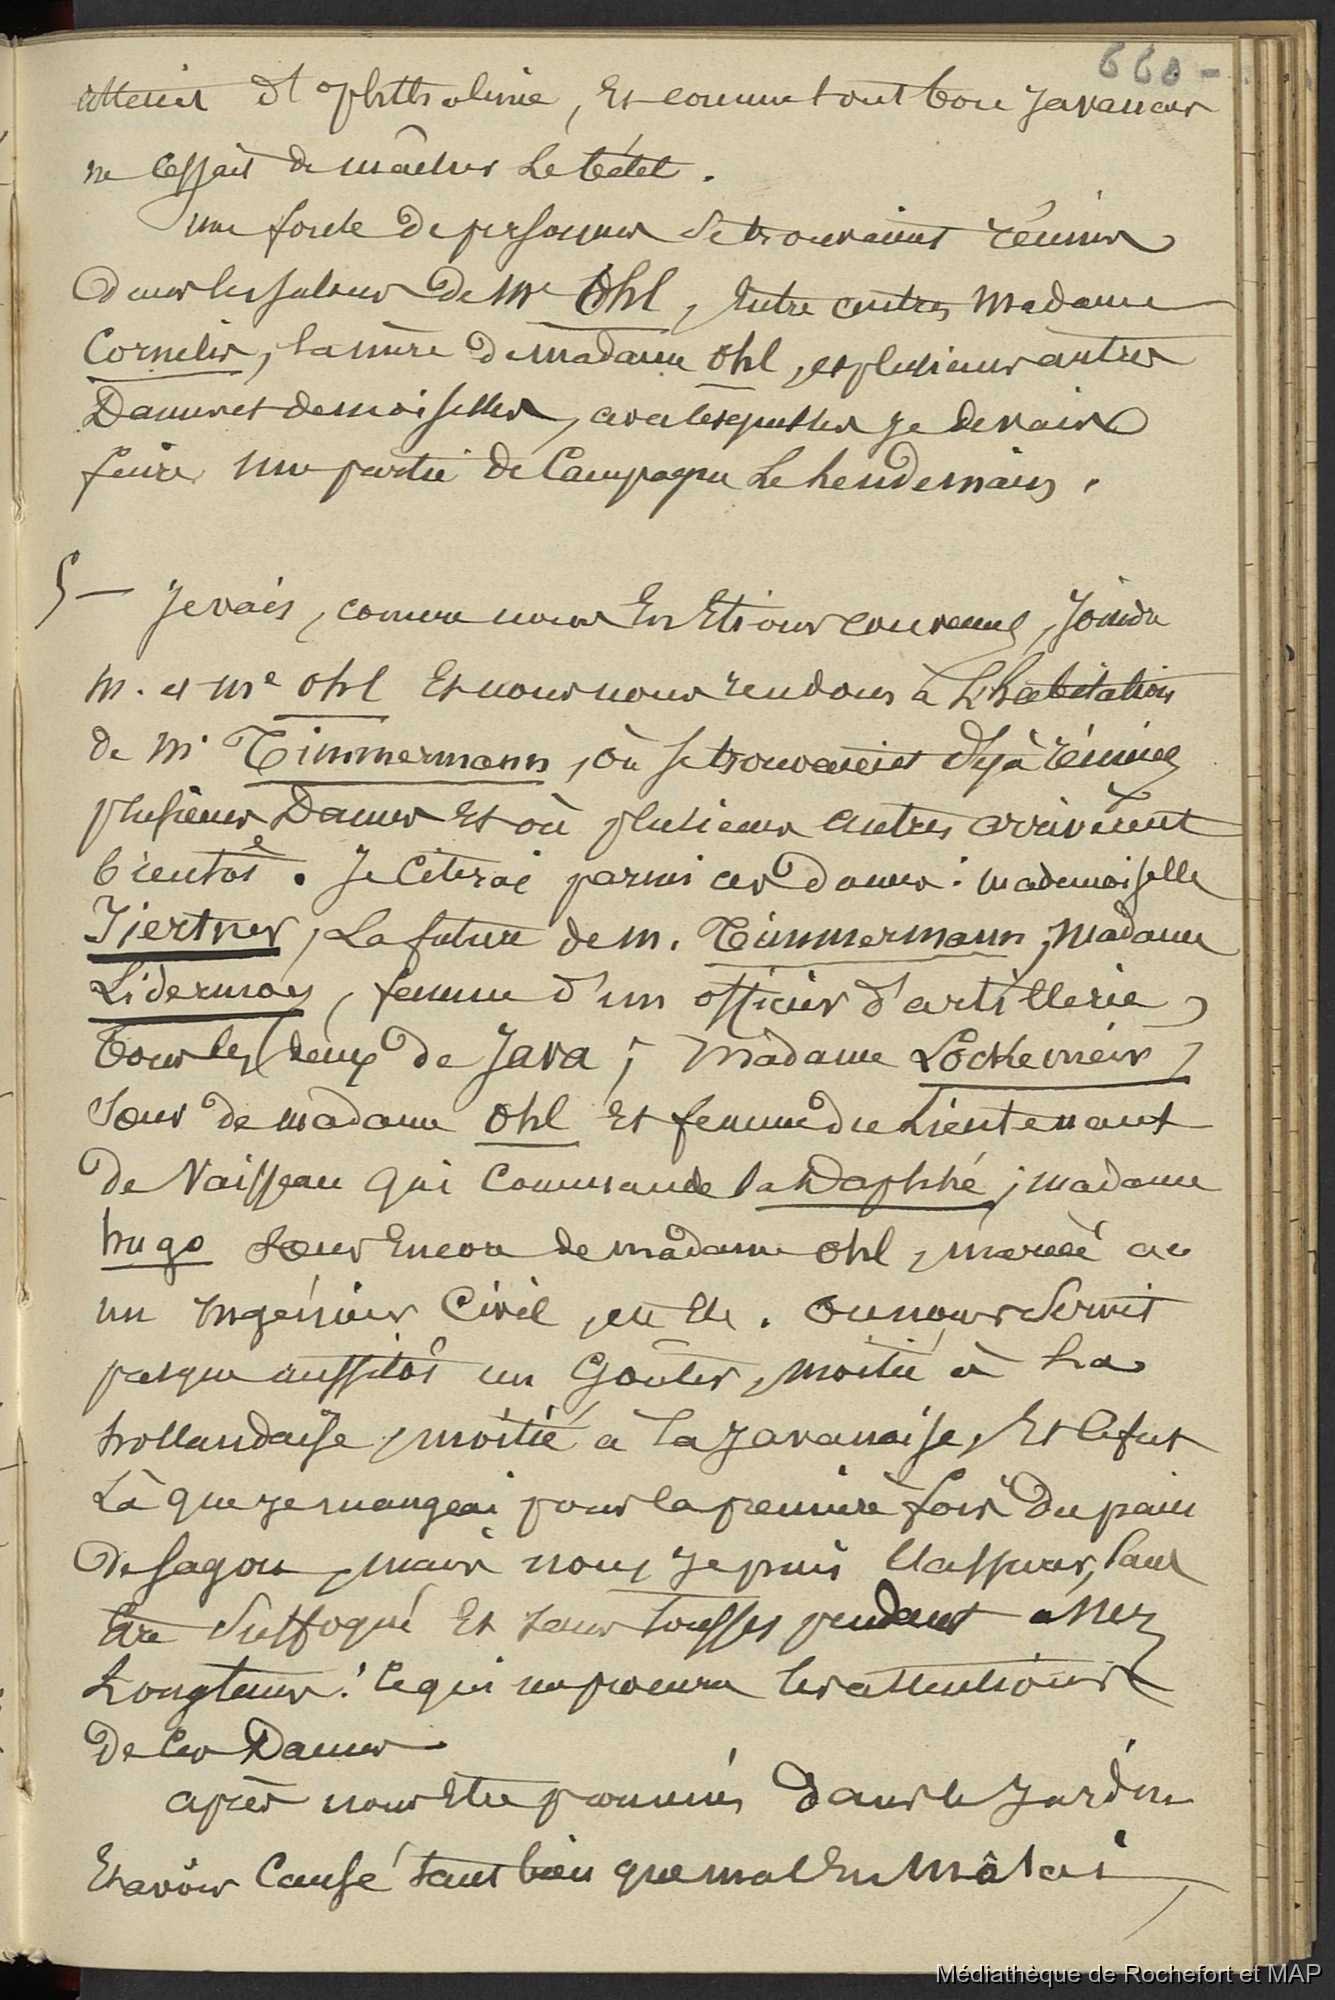 660-
atteint d'ophthalmie, et comme tout bon Javanais
ne cessait de mâcher le bétel.
une foule de personnes se trouvaient réunies
dans les salons de Me Ohl, entre autres Madame
Cornelis, la mère de madame Ohl, et plusieurs autres
Dames et demoiselles, avec lesquelles je devais
faire une partie de Campagne le lendemain.
5 — Je vais, comme nous en étions convenus, joindre
M. et Me Ohl et nous nous rendons à l'habitation
de Mr Timmermann, où se trouvaient déjà réunies
plusieurs Dames et où plusieurs autres arrivèrent
bientôt. Je citerai parmi ces dames: mademoiselle
Tiertner, la future de M. Timmermann, Madame
Lidermoes, femme d'un officier d'artillerie,
tous les deux de Java; Madame Lockemeir,
Sœur de madame Ohl et femme du Lieutenant
de Vaisseau qui commande la Daphné; madame
hugo sœur encore de madame Ohl, mariée à
un Ingénieur Civil, etc. On nous servit
presque aussitôt un Goûter, moitié à la
hollandaise, moitié à la Javanaise, et ce fut
là que je mangeai pour la première fois du pain
de Sagou, mais non, je puis l'assurer, sans
être suffoqué et sans tousser pendant assez
Longtems! ce qui me procura les attentions
de ces Dames.
après nous être promenés dans le Jardin
et avoir causé tant bien que mal en Malai,
Médiathèque de Rochefort et MAP